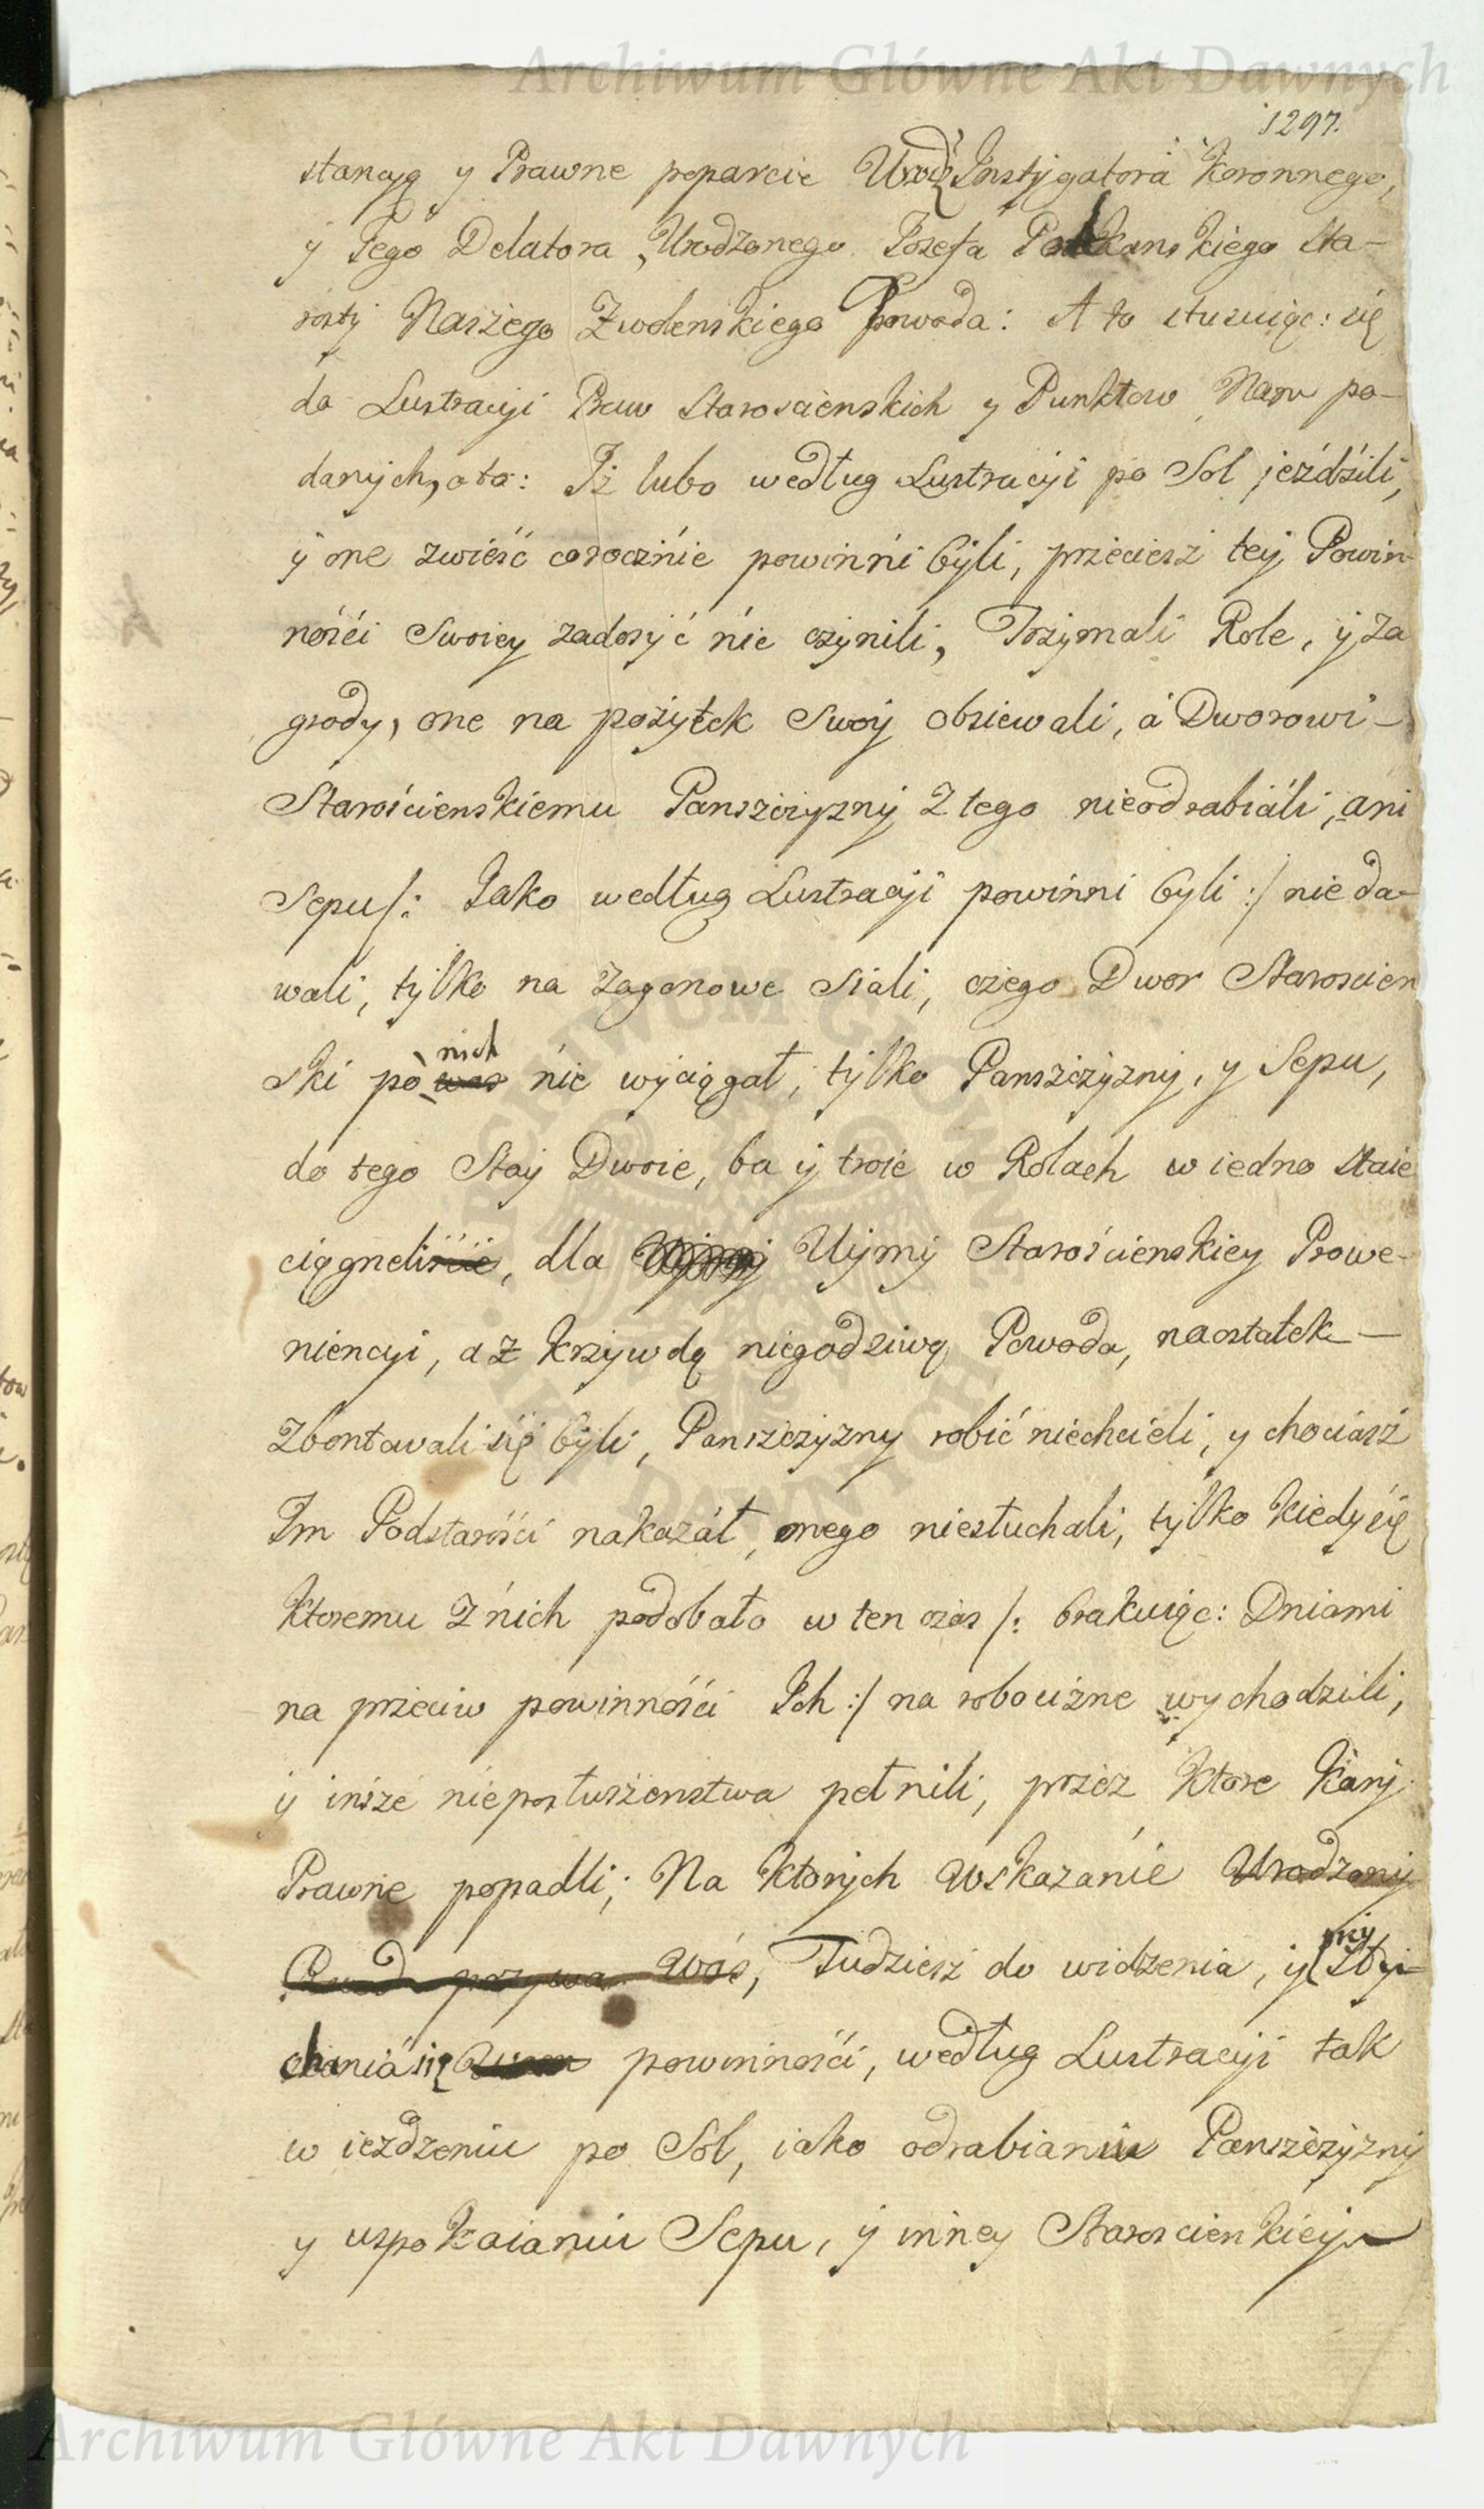 Archiwum Główne Akt Dawnych
1297.
stancyą y Prawne poparcie Urodz Instygatora Koronnego,
y Jego Delatora, Urodzonego Jozefa Sta-
rosty Naszego Zwolenskiego Powoda: A to stusuiąc: się
do Lustracyi Praw Staroscienskich y Punktow Nam po-
danych, o to: Iż lubo według Lustracyi po Sol jeździli,
y one zwieść corocznie powinni byli, przeciesz tey Powin-
ności Swoiey zadosyć nie czynili, Trzymali Role, y Za
grody, one na pożytek Swoy obsiewali, a Dworowi-
Starościenskiemu Panszczyzny z tego nieodrabiali, ani
Sepu/: Jako według Lustracyi powinni byli :/ nie da-
wali, tylko na Zagonowe Siali, czego Dwor Staroscien
ski po nich nie wyciągał, tylko Panszczyzny, y Sepu,
do tego Stay Dwoie, ba y troie w Rolach w iedno Staie
ciągneliście, dla Ujmy Ujmy Starościenskiey Prowe-
niencyi, a z krzywdą niegodziwą Powoda, naostatek-
Zbontowali się byli, Panszczyzny robić niechcieli, y chociasz
Im Podstarości nakazał, onego niesłuchali, tylko kiedy się
ktoremu z nich podobało w ten czas /: brakuiąc: Dniami
na przeciw powinności Ich :/ na robociznę wychodzili,
y insze nieposłuszenstwa pełnili, przez ktore Kary
Prawne popadli; Na ktorych wskazanie Urodzony
Powod pozywa Was, Tudziesz do widzenia, y
się powinności, według Lustracyi tak
w iezdzeniu po Sol, iako odrabianiu Panszczyzny
y uspokaianiu Sepu, y inney Staroscienkiey
Archiwum Główne Akt Dawnych